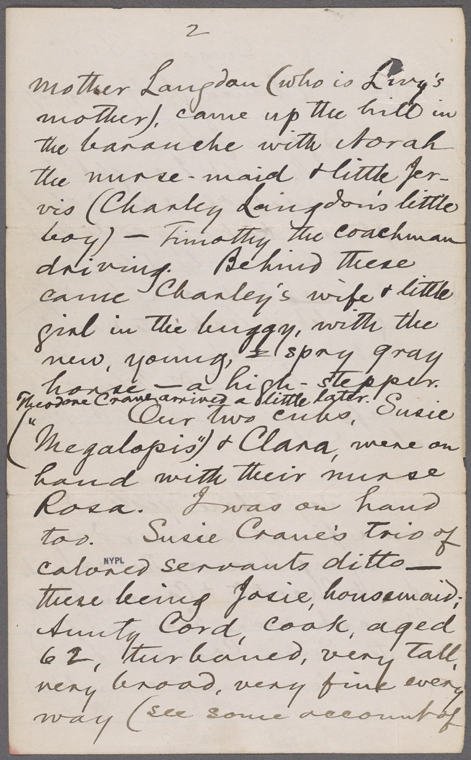 2
mother Langdon (who is Livy's
mother), came up the hill in
the barouche with Norah
the nurse-maid & little Jer-
vis (Charley Langdon's little
boy) — Timothy the coachman
driving. Behind these
came Charley's wife & little
girl in the buggy, with the
new, young, & spry gray
horse — a high-stepper.
Theodore Crane arrived a little later.
Our two cubs, Susie
("Megalopis") & Clara, were on
hand with their nurse
Rosa. I was on hand
too. Susie Crane's trio of
colored servants ditto —
NYPL
these being Josie, housemaid;
Aunty Cord, cook, aged
62, turbaned, very tall,
very broad, very fine every
way (see some account of